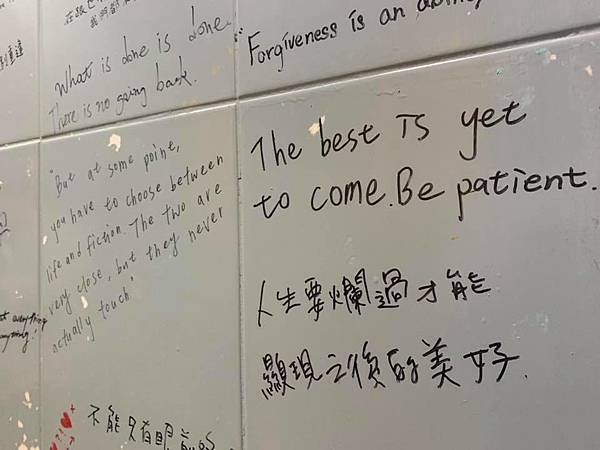 What is done is done.
There is no going back.
"But at some point,
you have to choose between
life and fiction. The two are
very close, but they never
actually touch"
Forgiveness is an
The best Is yet
to come. Be patient.
人生要爛過才能
顯現之後的美好.
不能只有眼前的